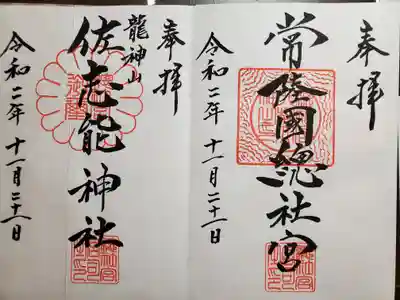 奉拝
常陸國總社宮
令和二年 十一月二十一日
奉拝
龍神山
佐志能神社
令和二年 十一月二十一日